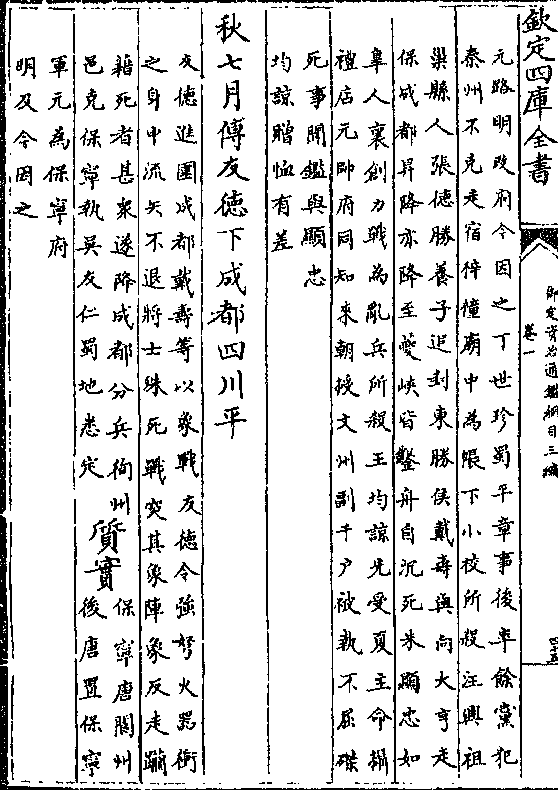 欽定四庫全書
御定資治通鑑綱目三編
卷一
四十五
元路明改府今因之丁世珍蜀平章事後率餘黨犯
秦州不克走宿梓橦廟中為帳下小校所殺汪興祖
巢縣人張德勝養子追封東勝侯戴壽與向大亨走
保成都昇降亦降至夔峽皆鑿舟自沉死朱顯忠如
臯人裹創力戰為亂兵所殺王均諒先受夏主命攝
禮店元帥府同知來朝授文州副千户被執不屈磔
死事聞鑑與顯忠
均諒贈恤有差
秋七月傅友德下成都四川平
友德進圍成都戴壽等以象戰友德令強弩火器衝
之身中流矢不退將士殊死戰突其象陣象反走躪
藉死者甚衆遂降成都分兵徇州
邑克保寧執吳友仁蜀地悉定
質實
保寧唐閬州
後唐置保寧
軍元為保寧府
明及今因之